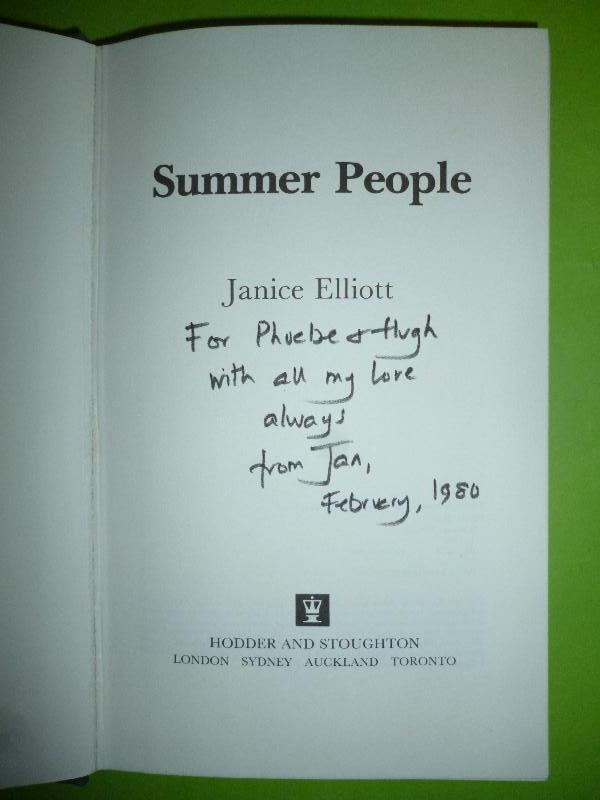 Summer People
Janice Elliott
For Phoebe & Hugh
with all my love
always
from Jan,
February, 1980
HODDER AND STOUGHTON
LONDON SYDNEY AUCKLAND TORONTO